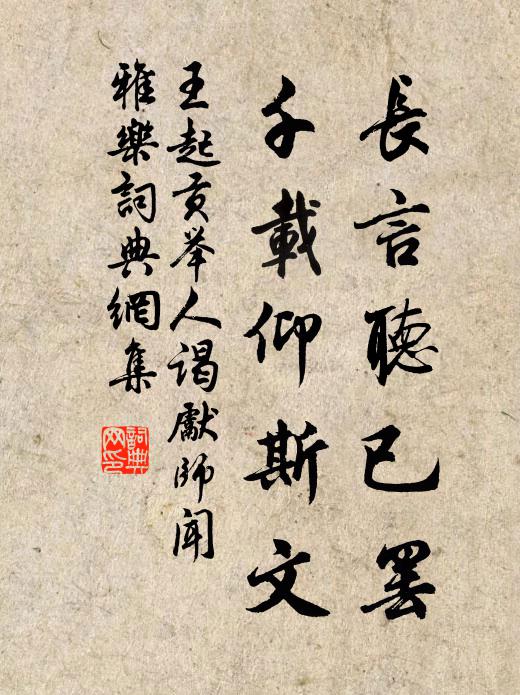 長言聽已罢
千載仰斯文
王起贡举人谒獻師聞
雅樂詞典網集
詞典
网印